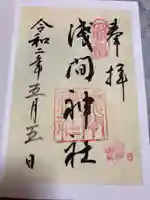 奉拝
浅間神社
令和二年五月五日